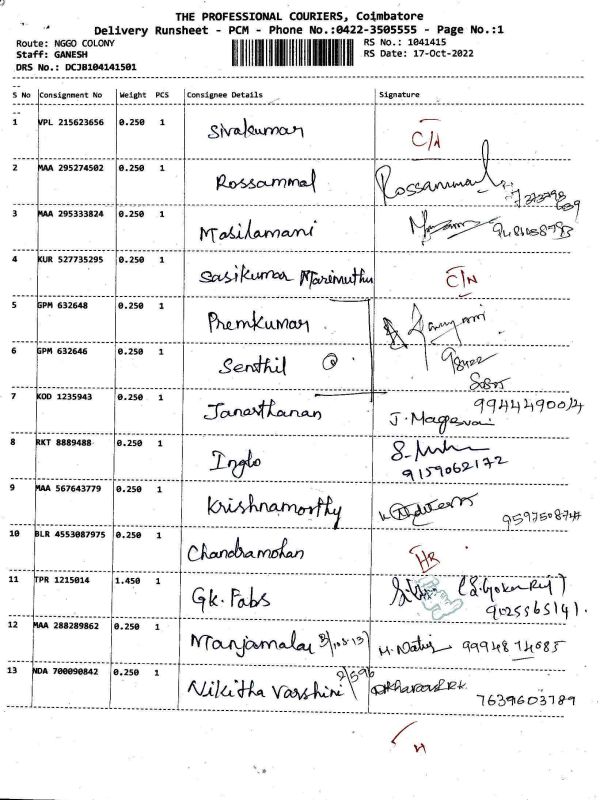 THE PROFESSIONAL COURIERS, Coimbatore
Delivery Runsheet - PCM - Phone No.:0422-3505555 - Page No.:1
Route: NGGO COLONY RS No.: 1041415
Staff: GANESH RS Date: 17-Oct-2022
DRS No.: DCJB104141501
S No Consignment No Weight PCS Consignee Details Signature
1 VPL 215623656 0.250 1 Sivakumar C/N
2 MAA 295274502 0.250 1 Rossammal Rossammal
3 MAA 295333824 0.250 1 Masilamani
4 KUR 527735295 0.250 1 Sasikumar Marimuthu C/N
5 GPM 632648 0.250 1 Premkumar
6 GPM 632646 0.250 1 Senthil
7 KOD 1235943 0.250 1 Janarthanan J. Magesvai
8 RKT 8889488 0.250 1 Inglo 9159062172
9 MAA 567643779 0.250 1 Krishnamorthy
10 BLR 4553087975 0.250 1 Chandramohan
11 TPR 1215014 1.450 1 GK. Fabs
12 MAA 288289862 0.250 1 Manjamalar 9994874685
13 NDA 700090842 0.250 1 Nikitha Varshini 7639603789